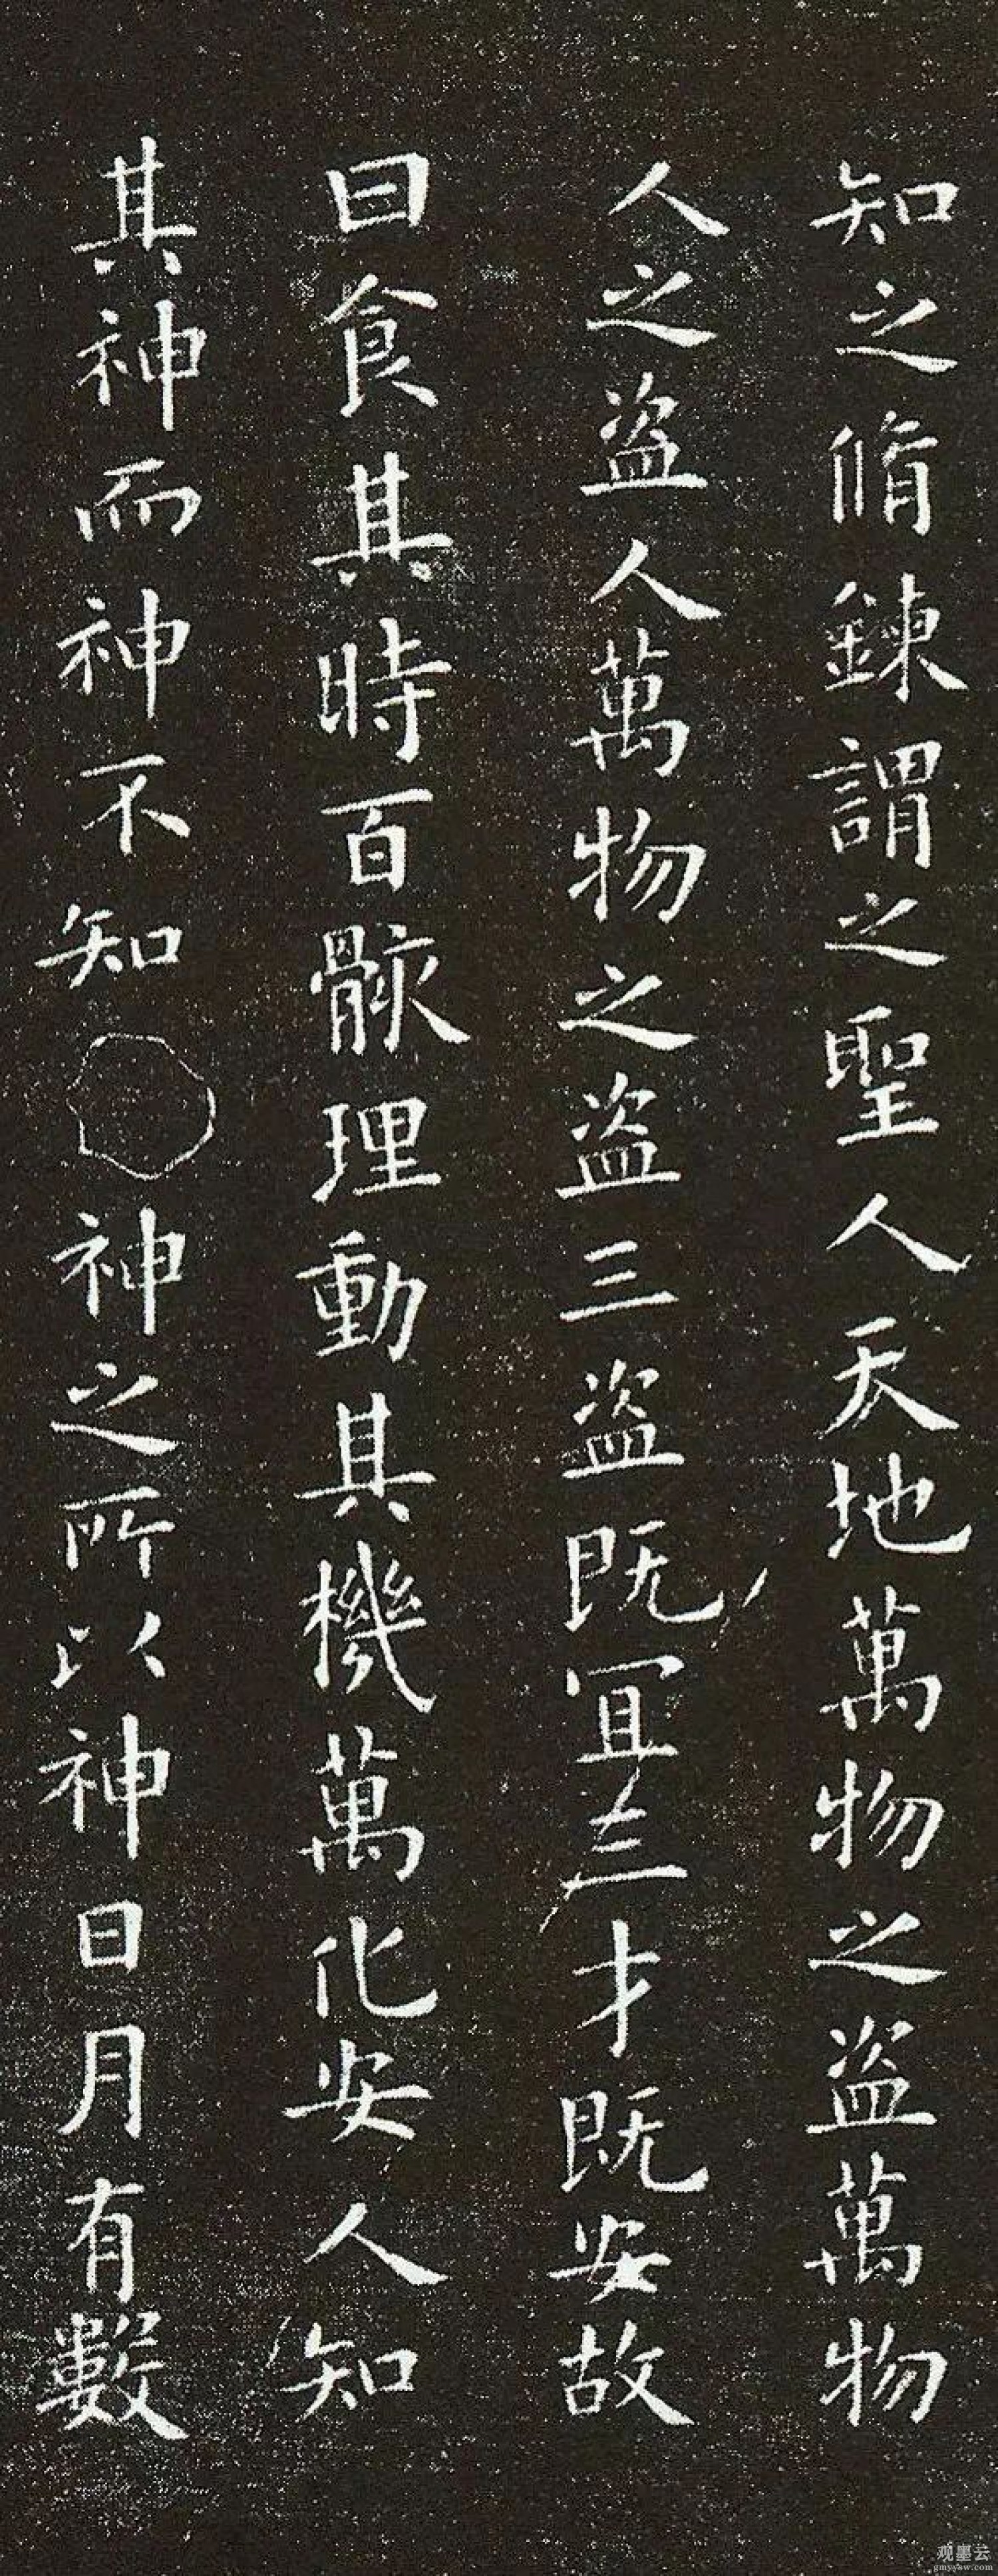 知之脩鍊謂之聖人天地萬物之盗萬物
人之盗人萬物之盗三盗既宜三才既安故
曰食其時百骸理動其機萬化安人知
其神而神不知〇神之所以神日月有數
观墨云
gmyysw.com